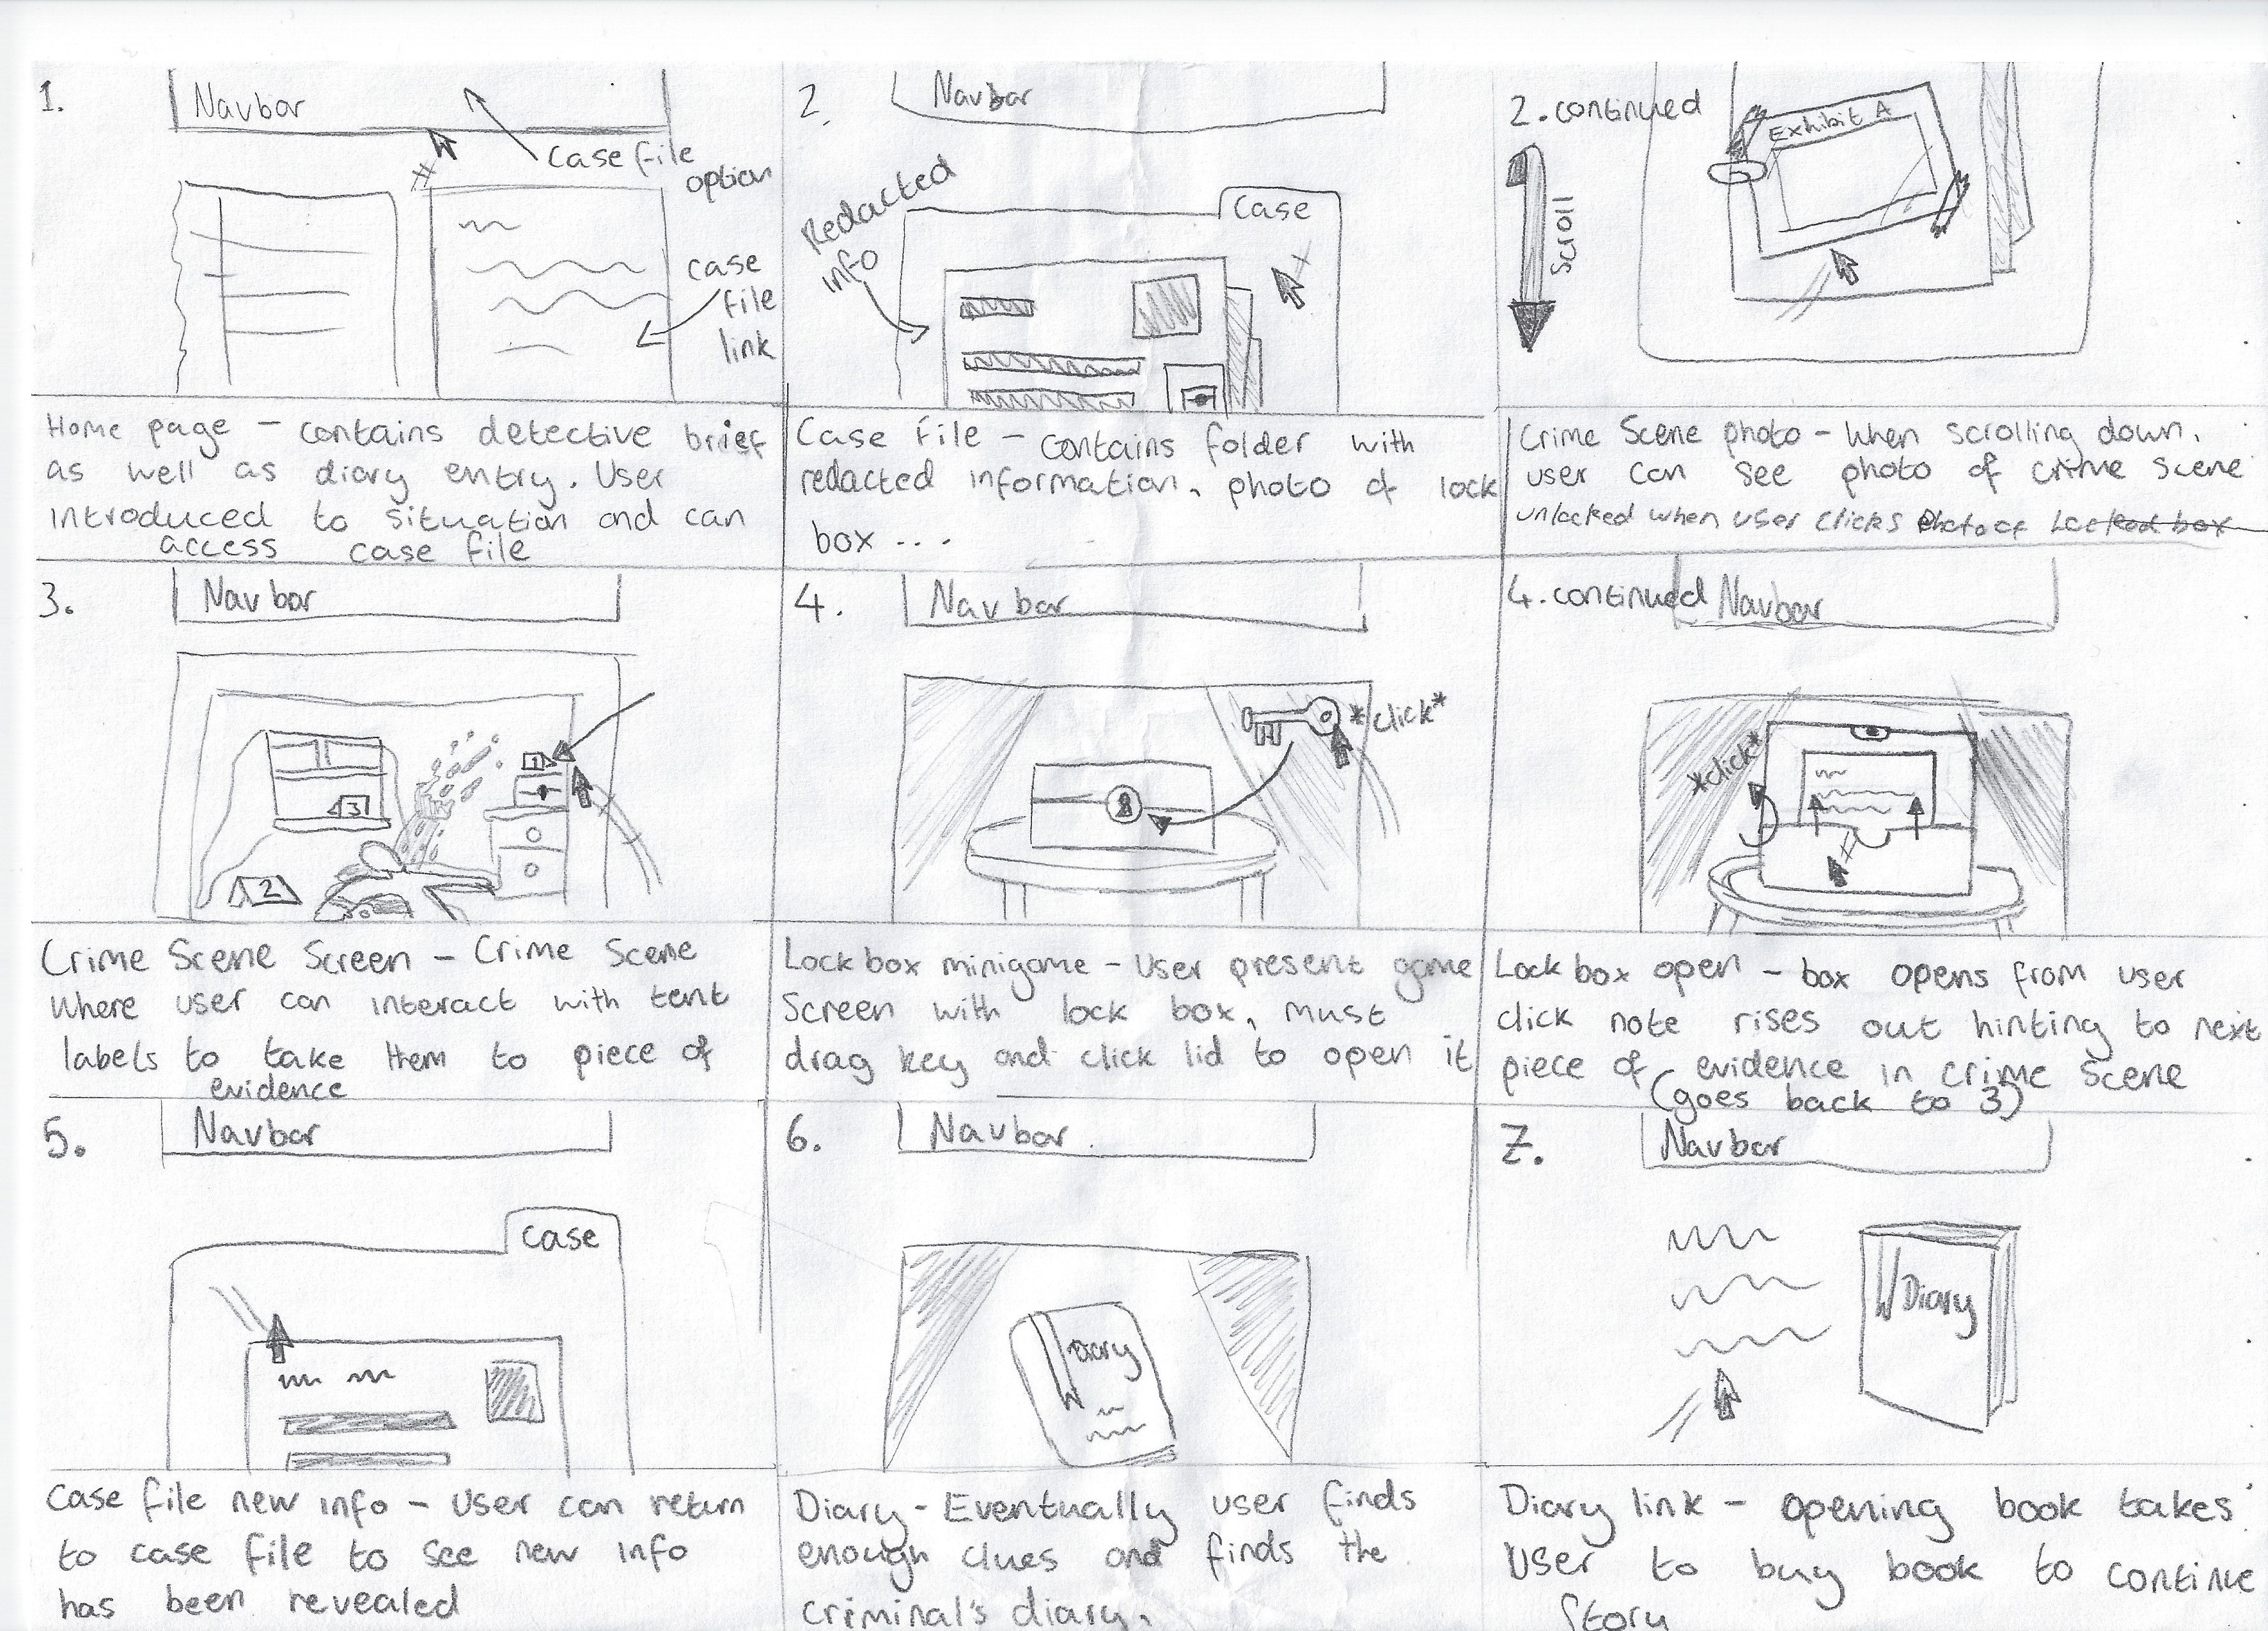 1.
Navbar
Case file
option
case
file
link
Home page - contains detective brief
as well as diary entry. User
introduced to situation and can
access case file
2.
Navbar
Redacted
info
Case
Case File - contains folder with
redacted information, photo of lock
box ...
2. continued
Exhibit A
Scroll
Crime Scene photo - When scrolling down,
user can see photo of crime scene
unlocked when user clicks photo of Locked box
3.
Nav bar
1
3
2
Crime Scene Screen - Crime Scene
Where user can interact with tent
labels to take them to piece of
evidence
4.
Nav bar
*click*
Lock box minigame - User present game
Screen with lock box, must
drag key and click lid to open it
4. continued
Navbar
*click*
Lock box open - box opens from user
click note rises out hinting to next
piece of evidence in crime scene
(goes back to 3)
5.
Navbar
Case
Case file new info - User can return
to case file to see new info
has been revealed
6.
Navbar
Diary
Diary - Eventually user finds
enough clues and finds the
criminal's diary.
7.
Navbar
Diary
Diary link - opening book takes
User to buy book to continue
Story